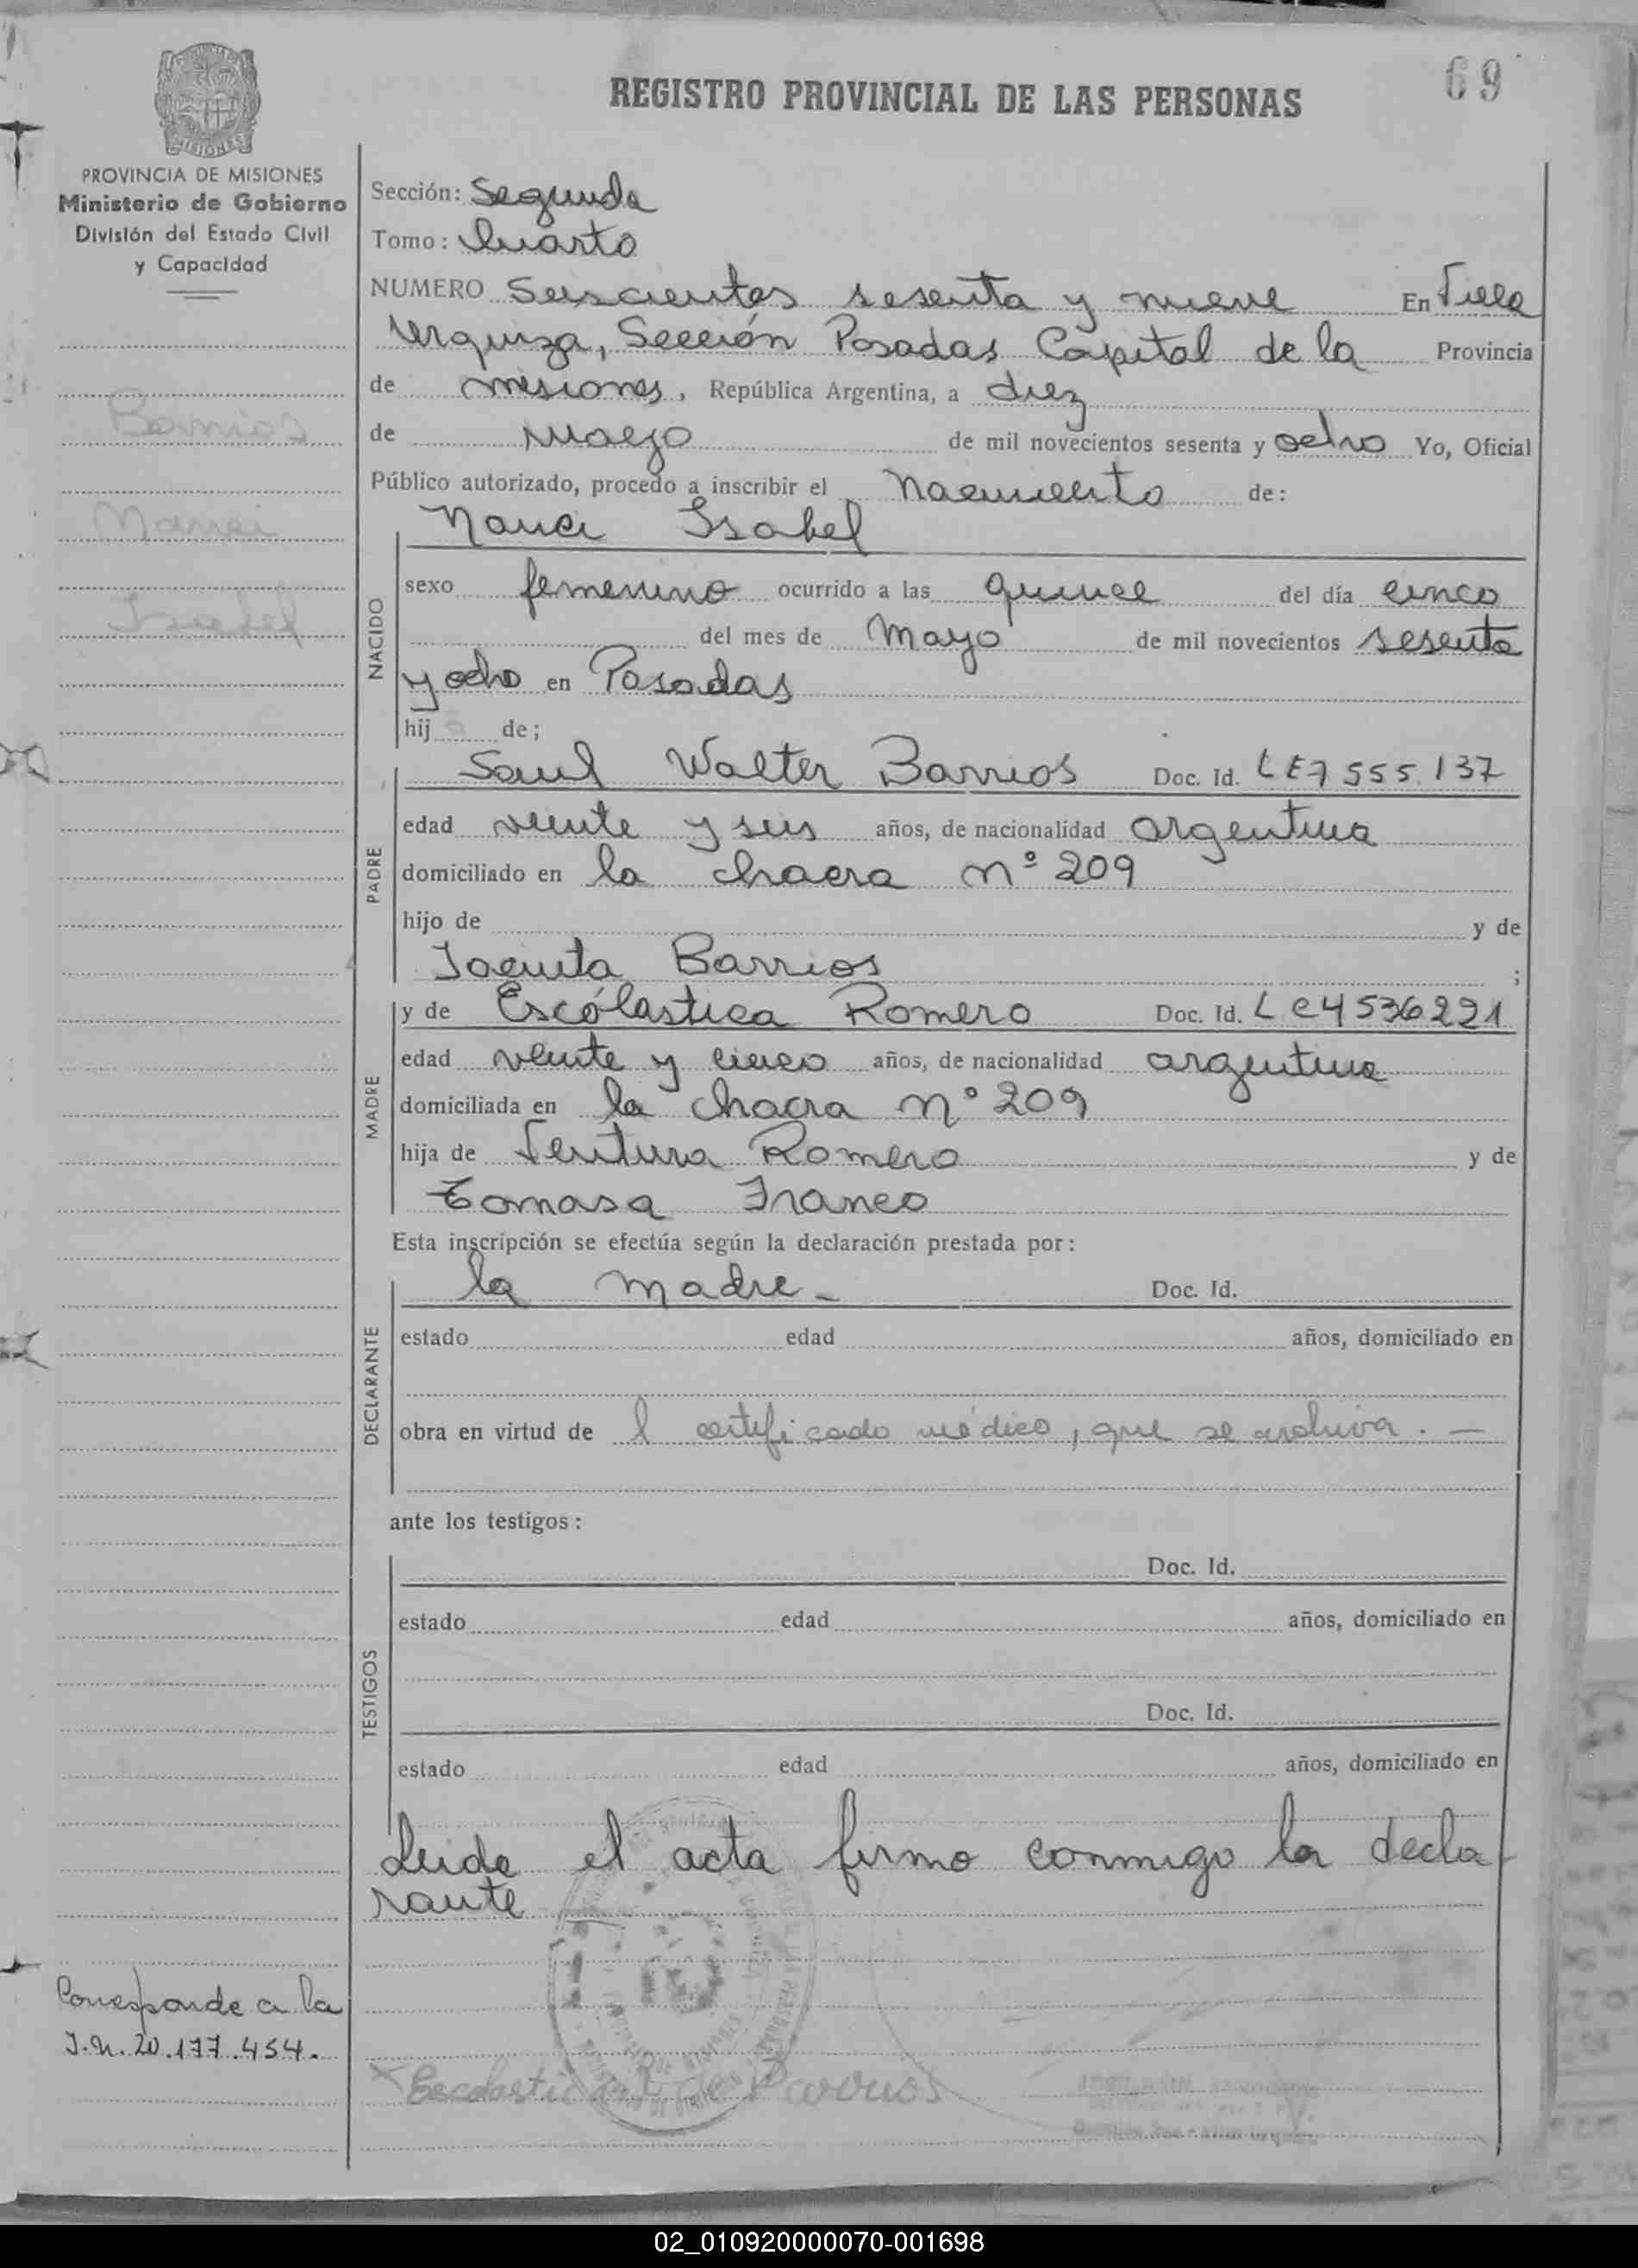 69
REGISTRO PROVINCIAL DE LAS PERSONAS
MISIONES
PROVINCIA DE MISIONES
Ministerio de Gobierno
División del Estado Civil
y Capacidad
Barrios
Nanci
Isabel
Sección: Segunda
Tomo: Cuarto
NUMERO Seiscientos sesenta y nueve En Villa
Urquiza, Sección Posadas Capital de la Provincia
de misiones, República Argentina, a diez
de Mayo de mil novecientos sesenta y ocho Yo, Oficial
Público autorizado, procedo a inscribir el Nacimiento de:
Nanci Isabel
NACIDO
sexo femenino ocurrido a las quince del día cinco
del mes de Mayo de mil novecientos sesenta
y ocho en Posadas
hij a de;
PADRE
Saul Walter Barrios Doc. Id. LE7 555.137
edad veinte y seis años, de nacionalidad argentina
domiciliado en la chacra nº 209
hijo de y de
Jacinta Barrios ;
MADRE
y de Escólastica Romero Doc. Id. LC4536221
edad veinte y cinco años, de nacionalidad argentina
domiciliada en la chacra nº 209
hija de Ventura Romero y de
Tomasa Franco
Esta inscripción se efectúa según la declaración prestada por:
DECLARANTE
la madre - Doc. Id.
estado edad años, domiciliado en
obra en virtud de l certificado médico, que se archiva. —
ante los testigos:
TESTIGOS
Doc. Id.
estado edad años, domiciliado en
Doc. Id.
estado edad años, domiciliado en
Leida el acta firmo conmigo la decla-
rante
Corresponde a la
I.N. 20.177.454.
02_010920000070-001698